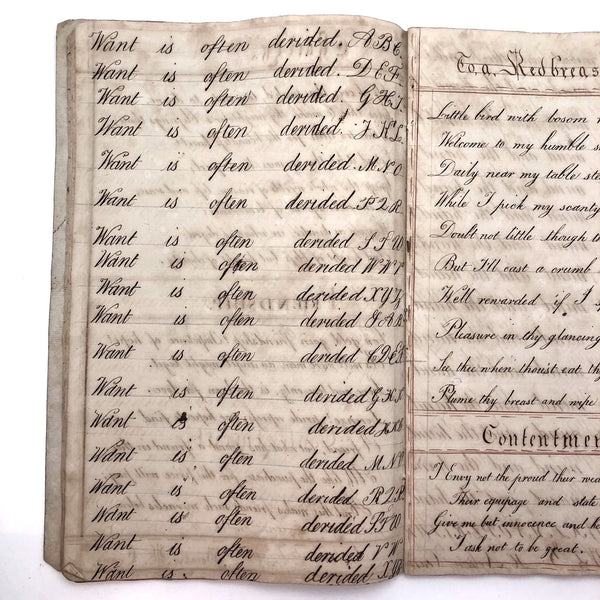 Want is often derided. A B C
Want is often derided. D E F
Want is often derided. G H I
Want is often derided. J K L
Want is often derided. M N O
Want is often derided. P Q R
Want is often derided S T U
Want is often derided W W V
Want is often derided X Y Z
Want is often derided. A B
Want is often derided C D E
Want is often derided G H
Want is often derided
Want is often derided. M N
Want is often derided. R Q P
Want is often derided S T U
Want is often derided V W
Want is often derided X
To a Redbreas
Little bird with bosom
Welcome to my humble
Daily near my table
While I pick my scanty
Doubt not little though
But I'll cast a crumb
Well rewarded if I
Pleasure in thy glancing
See thee when thou'st eat
Plume thy breast and wipe
Contentmen
I Envy not the proud their
Their equipage and state
Give me but innocence and
I ask not to be great.